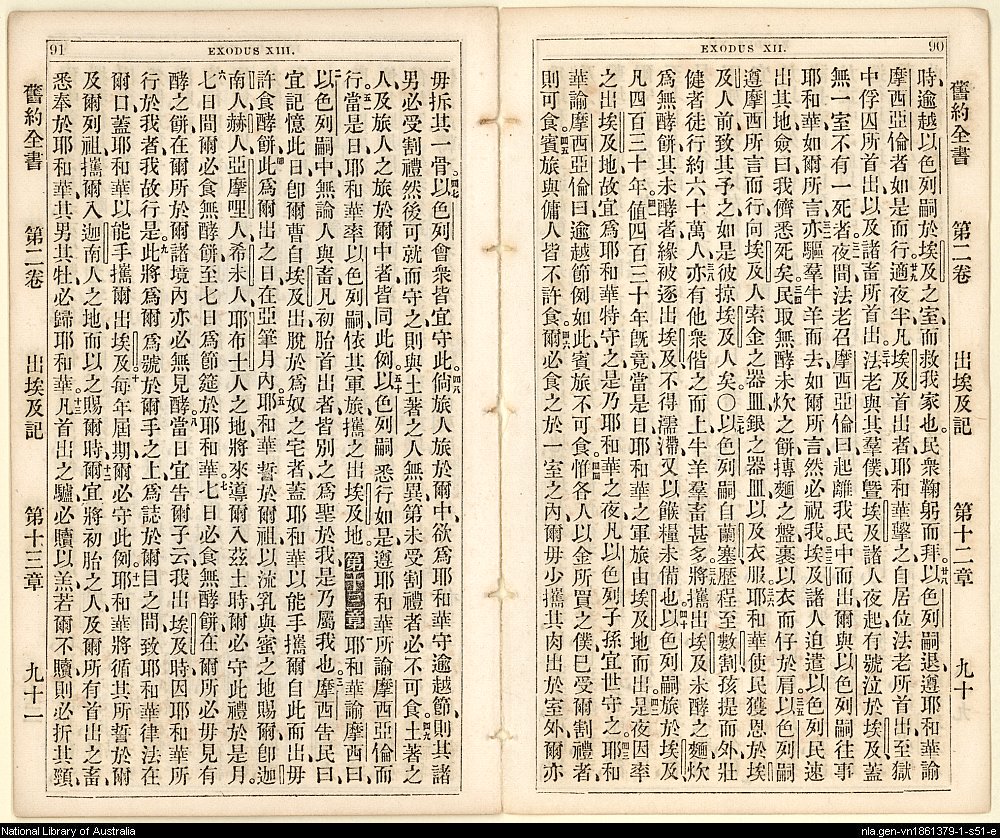 90
EXODUS XII.
舊約全書 第二卷 出埃及記 第十二章 九十
時逾越以色列嗣於埃及之室而救我家也。民衆鞠躬而拜。廿八以色列嗣退遵耶和華諭
摩西亞倫者如是而行。廿九適夜半凡埃及首出者耶和華擊之自居位法老所首出至獄
中俘囚所首出以及諸畜所首出。三十法老與其羣僕曁埃及諸人夜起有號泣於埃及蓋
無一室不有一死者。三一夜間法老召摩西亞倫曰起離我民中而出爾與以色列嗣往事
耶和華如爾所言。三二亦驅羣牛羊而去如爾所言然必祝我。三三埃及諸人迫遣以色列民速
出其地僉曰我儕悉死矣。三四民取無酵未炊之餅摶麵之盤裹以衣而仔於肩。三五以色列嗣
遵摩西所言而行向埃及人索金之器皿銀之器皿以及衣服。三六耶和華使民獲恩於埃
及人前致其予之如是彼掠埃及人矣。〇三七以色列嗣自蘭塞歷程至數割孩提而外壯
健者徒行約六十萬人。三八亦有他衆偕之而上牛羊羣畜甚多。三九將攜出埃及未酵之麵炊
爲無酵餅其未酵者緣被逐出埃及不得濡滯又以餱糧未備也。四十以色列嗣旅於埃及
凡四百三十年。四一値四百三十年旣竟當是日耶和華之軍旅由埃及地而出。四二是夜因率
之出埃及地故宜爲耶和華特守之是乃耶和華之夜凡以色列子孫宜世守之。四三耶和
華諭摩西亞倫曰逾越節例如此賓旅不可食。四四惟各人以金所買之僕已受爾割禮者
則可食。四五賓旅與傭人皆不許食。四六爾必食之於一室之內爾毋少攜其肉出於室外爾亦
91
EXODUS XIII.
毋拆其一骨。四七以色列會衆皆宜守此。四八倘旅人旅於爾中欲爲耶和華守逾越節則其諸
男必受割禮然後可就而守之則與土著之人無異第未受割禮者必不可食。四九土著之
人及旅人之旅於爾中者皆同此例。五十以色列嗣悉行如是遵耶和華所諭摩西亞倫而
行。五一當是日耶和華率以色列嗣依其軍旅攜之出埃及地。第十三章 一耶和華諭摩西曰
二以色列嗣中無論人與畜凡初胎首出者皆別之爲聖於我是乃屬我也。三摩西吿民曰
宜記憶此日卽爾曹自埃及出脫於爲奴之宅者蓋耶和華以能手攜爾自此而出毋
許食酵餅。四此爲爾出之日在亞筆月內。五耶和華誓於爾祖以流乳與蜜之地賜爾卽迦
南人赫人亞摩哩人希未人耶布士人之地將來導爾入茲土時爾必守此禮於是月。
六七日間爾必食無酵餅至七日爲節筵於耶和華。七七日必食無酵餅在爾所必毋見有
酵之餅在爾所於爾諸境內亦必無見酵。八當日宜吿爾子云我出埃及時因耶和華所
行於我者我故行是。九此將爲爾爲號於爾手之上爲誌於爾目之間致耶和華律法在
爾口蓋耶和華以能手攜爾出埃及。十每年屆期爾必守此例。十一耶和華將循其所誓於爾
及爾列祖攜爾入迦南人之地而以之賜爾時。十二爾宜將初胎之人及爾所有首出之畜
悉奉於耶和華其男其牡必歸耶和華。十三凡首出之驢必贖以羔若爾不贖則必折其頸
舊約全書 第二卷 出埃及記 第十三章 九十一
National Library of Australia
nla.gen-vn1861379-1-s51-e